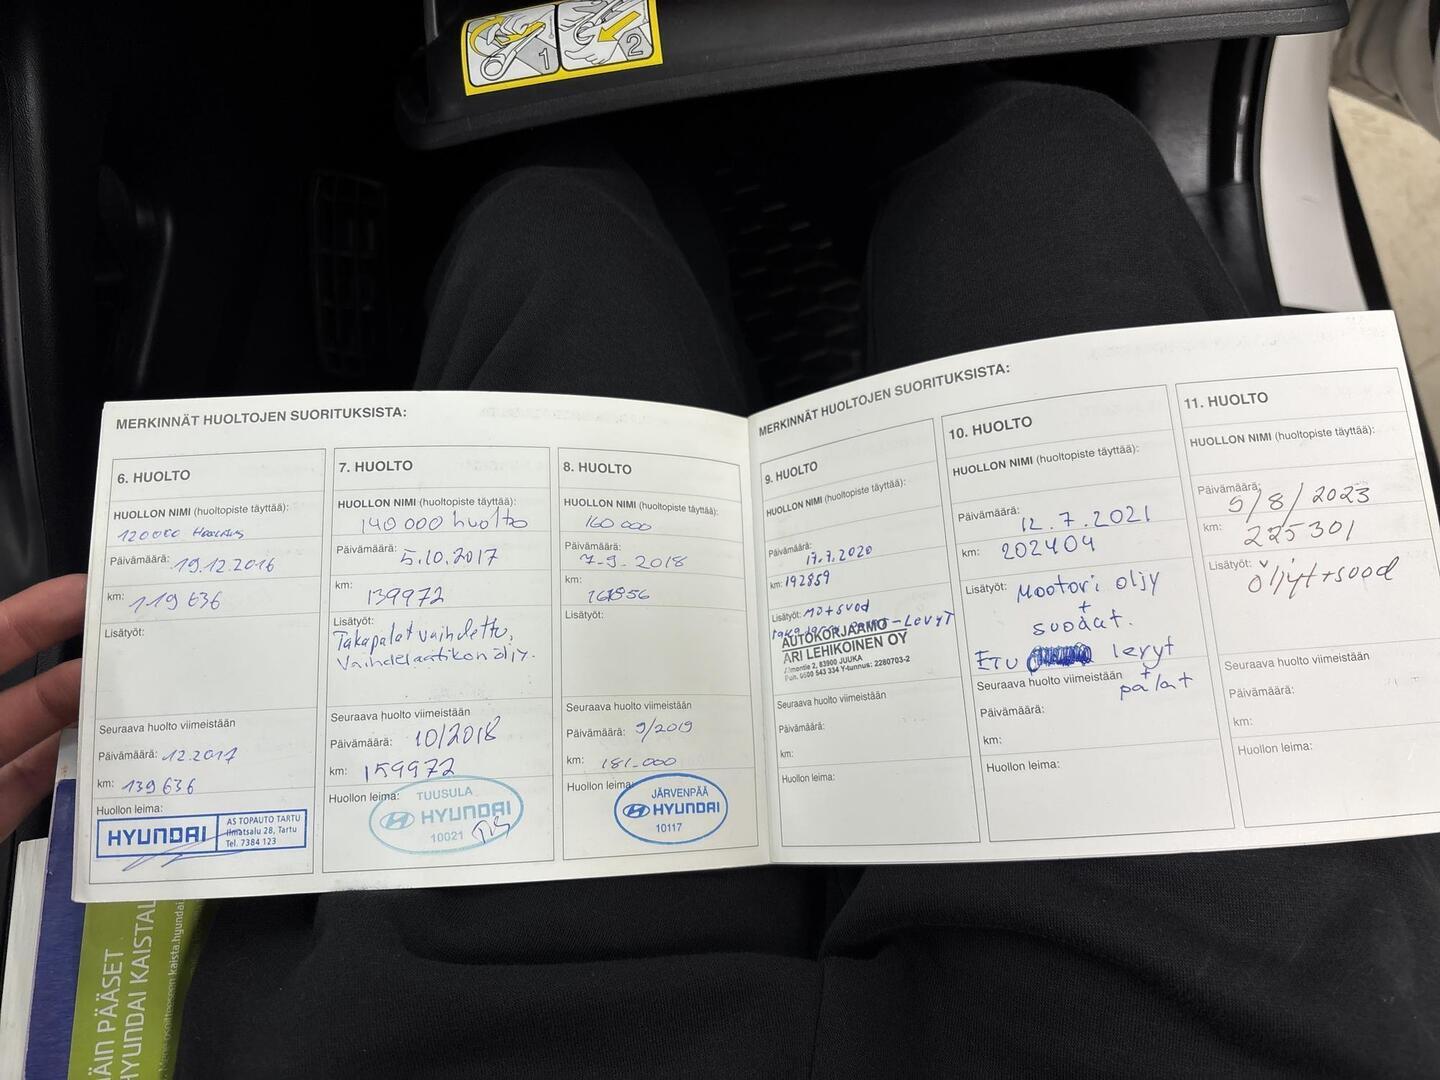 1
2
MERKINNÄT HUOLTOJEN SUORITUKSISTA:
6. HUOLTO
HUOLLON NIMI (huoltopiste täyttää):
120000
Päivämäärä: 19.12.2016
km: 119 636
Lisätyöt:
Seuraava huolto viimeistään
Päivämäärä: 12.2017
km: 139 636
Huollon leima:
HYUNDAI
AS TOPAUTO TARTU
Ilmatsalu 28, Tartu
Tel. 7384 123
7. HUOLTO
HUOLLON NIMI (huoltopiste täyttää):
140 000 huolto
Päivämäärä: 5.10.2017
km: 139972
Lisätyöt:
Takapalat vaihdettu,
Vaihdelaatikon öljy.
Seuraava huolto viimeistään
Päivämäärä: 10/2018
km: 159972
Huollon leima:
TUUSULA
HYUNDAI
10021
8. HUOLTO
HUOLLON NIMI (huoltopiste täyttää):
160 000
Päivämäärä:
7-9- 2018
km:
Lisätyöt:
Seuraava huolto viimeistään
Päivämäärä: 9/2019
km: 181-000
Huollon leima:
JÄRVENPÄÄ
HYUNDAI
10117
MERKINNÄT HUOLTOJEN SUORITUKSISTA:
9. HUOLTO
HUOLLON NIMI (huoltopiste täyttää):
Päivämäärä:
17.7.2020
km: 192859
Lisätyöt: MO+suod
-LEVYT
AUTOKORJAAMO
ARI LEHIKOINEN OY
2, 83900 JUUKA
Puh. 0500 543 334 Y-tunnus: 2280703-2
Seuraava huolto viimeistään
Päivämäärä:
km:
Huollon leima:
10. HUOLTO
HUOLLON NIMI (huoltopiste täyttää):
Päivämäärä:
12.7.2021
km: 202404
Lisätyöt: Mootori oljy
+
suodat.
ETU levyt
+
palat
Seuraava huolto viimeistään
Päivämäärä:
km:
Huollon leima:
11. HUOLTO
HUOLLON NIMI (huoltopiste täyttää):
Päivämäärä:
9/8/2023
km: 225301
Lisätyöt: öljyt+suod
Seuraava huolto viimeistään
Päivämäärä:
km:
Huollon leima:
ÄIN PÄÄSET
HYUNDAI KAISTAL
kaista.hyundai.